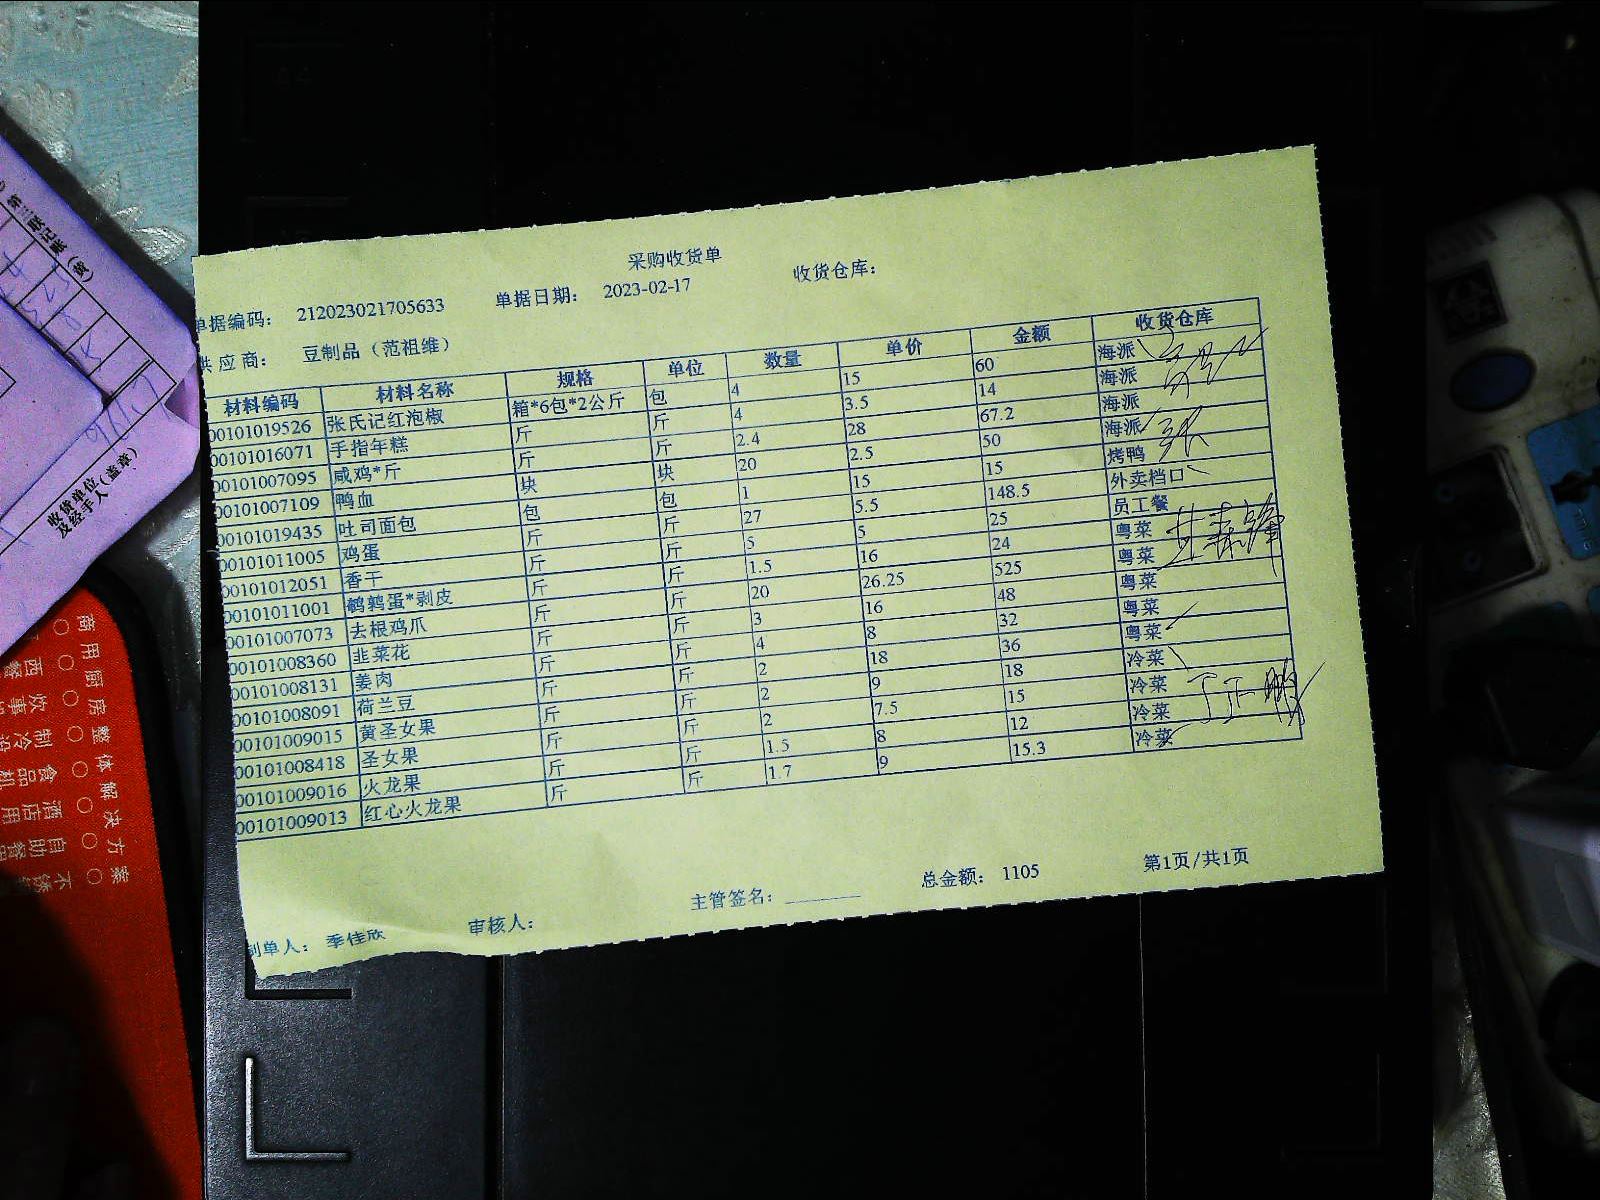 采购收货单
单据编码： 212023021705633 单据日期： 2023-02-17 收货仓库：
供应商： 豆制品（范祖维）
材料编码 材料名称 规格 单位 数量 单价 金额 收货仓库
00101019526 张氏记红泡椒 箱*6包*2公斤 包 4 15 60 海派
00101016071 手指年糕 斤 斤 4 3.5 14 海派
00101007095 咸鸡*斤 斤 斤 2.4 28 67.2 海派
00101007109 鸭血 块 块 20 2.5 50 海派
00101019435 吐司面包 包 包 1 15 15 烤鸭
00101011005 鸡蛋 斤 斤 27 5.5 148.5 外卖档口
00101012051 香干 斤 斤 5 5 25 员工餐
00101011001 鹌鹑蛋*剥皮 斤 斤 1.5 16 24 粤菜
00101007073 去根鸡爪 斤 斤 20 26.25 525 粤菜
00101008360 韭菜花 斤 斤 3 16 48 粤菜
00101008131 姜肉 斤 斤 4 8 32 粤菜
00101008091 荷兰豆 斤 斤 2 18 36 粤菜
00101009015 黄圣女果 斤 斤 2 9 18 冷菜
00101008418 圣女果 斤 斤 2 7.5 15 冷菜
00101009016 火龙果 斤 斤 1.5 8 12 冷菜
00101009013 红心火龙果 斤 斤 1.7 9 15.3 冷菜
制单人： 季佳欣 审核人： 主管签名： 总金额： 1105 第1页/共1页
第三联记账（黄）
收货单位
及经手人（盖章）
商用厨房整体解决方案
西餐
炊事
制冷设
食品机
酒店用
自助餐
不锈